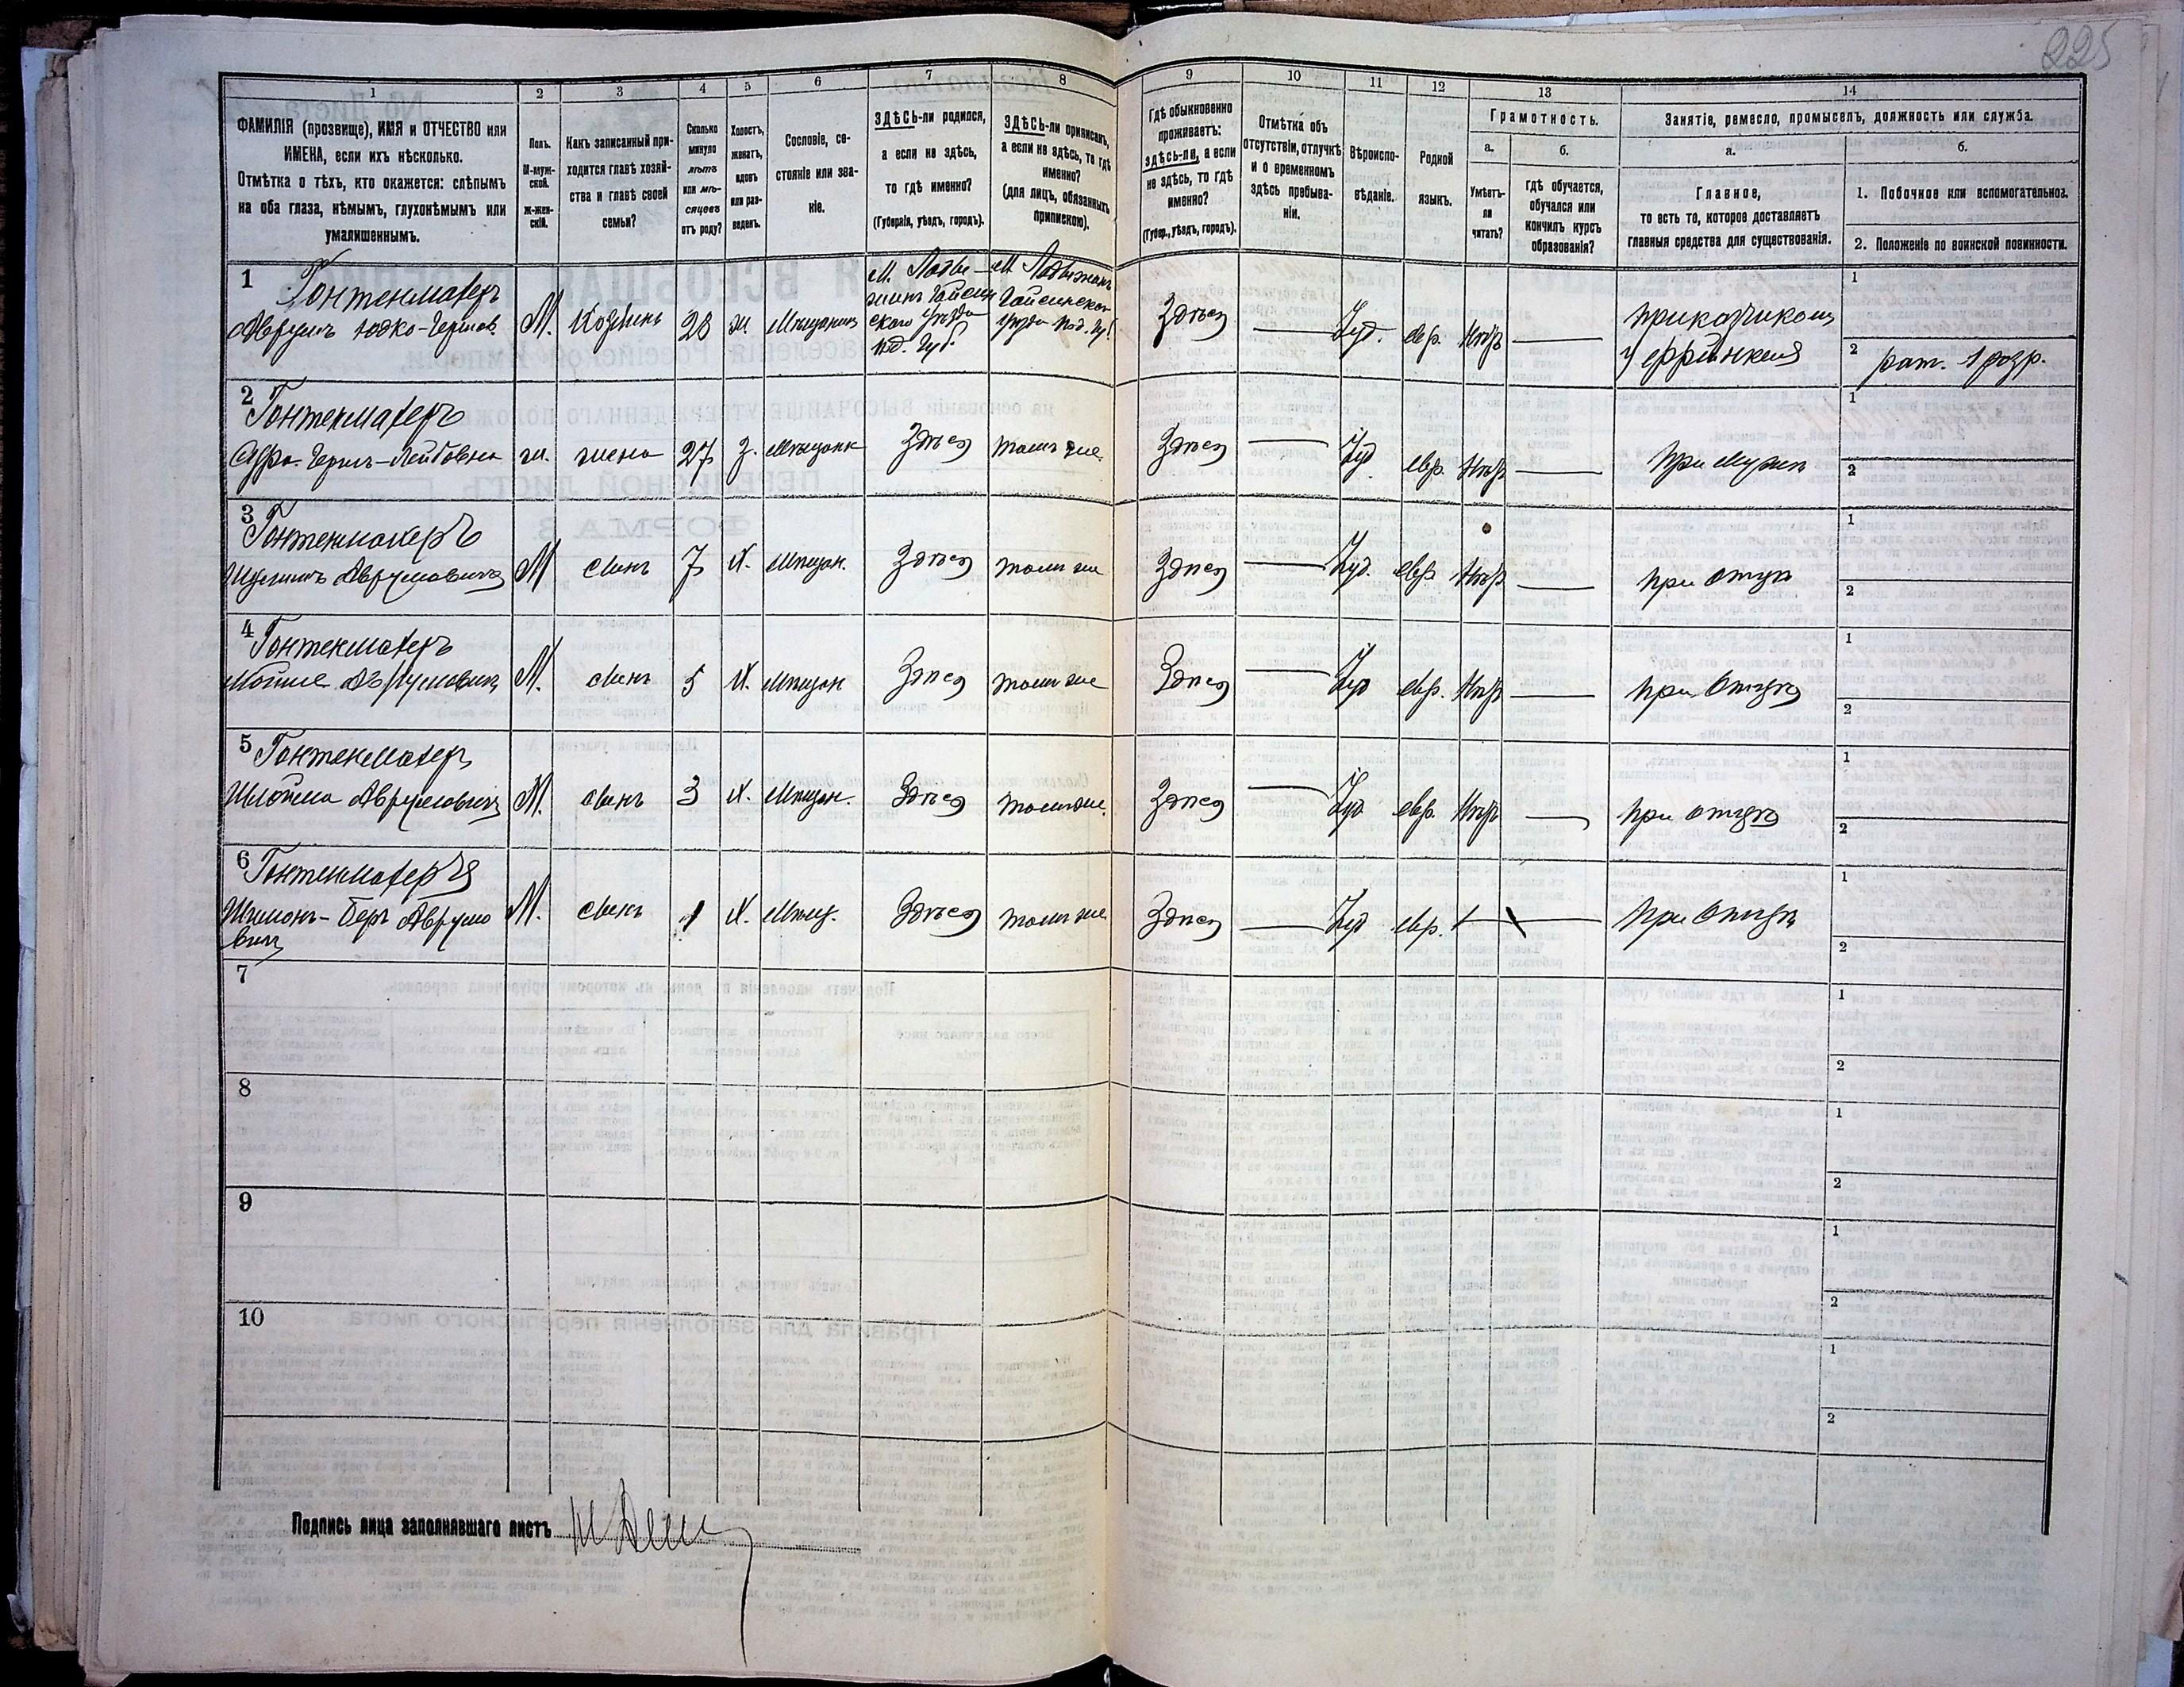 225
1
2
3
4
5
6
7
8
9
10
11
12
13
14
ФАМИЛІЯ (прозвище), ИМЯ и ОТЧЕСТВО или
ИМЕНА, если ихъ нѣсколько.
Отмѣтка о тѣхъ, кто окажется: слѣпымъ
на оба глаза, нѣмымъ, глухонѣмымъ или
умалишеннымъ.
Полъ.
М-муж-
ской.
ж-жен-
скій.
Какъ записанный при-
ходится главѣ хозяй-
ства и главѣ своей
семьи?
Сколько
минуло
лѣтъ
или мѣ-
сяцевъ
отъ роду?
Холостъ,
женатъ,
вдовъ
или раз-
веденъ.
Сословіе, со-
стояніе или зва-
ніе.
ЗДѢСЬ-ли родился,
а если не здѣсь,
то гдѣ именно?
(Губернія, уѣздъ, городъ).
ЗДѢСЬ-ли приписанъ,
а если не здѣсь, то гдѣ
именно?
(для лицъ, обязанныхъ
припискою).
Гдѣ обыкновенно
проживаетъ:
здѣсь-ли, а если
не здѣсь, то гдѣ
именно?
(Губер., уѣздъ, городъ).
Отмѣтка объ
отсутствіи, отлучкѣ
и о временномъ
здѣсь пребыва-
ніи.
Вѣроиспо-
вѣданіе.
Родной
языкъ.
Грамотность.
а.
Умѣетъ-
ли
читать?
б.
гдѣ обучается,
обучался или
кончилъ курсъ
образованія?
Занятіе, ремесло, промыселъ, должность или служба.
а.
Главное,
то есть то, которое доставляетъ
главныя средства для существованія.
б.
1. Побочное или вспомогательное.
2. Положеніе по воинской повинности.
1
Гонтенмахеръ
Аврумъ Юдко-Гершов.
М.
Хозяинъ
28
ж
Мѣщанинъ
М. Ладыжинъ Гайсинскаго уѣзда Под. Губ.
М. Ладыжинъ Гайсинскаго уѣзда Под. Губ.
Здѣсь
Іуд.
евр.
Нѣтъ
приказчикомъ
у Френкеля
1
2 рат. 1 разр.
2
Гонтенмахеръ
Герш-Лейбовна
ж.
жена
27
З.
Мѣщанк
Здѣсь
тамъ же
Здѣсь
Іуд
евр.
Нѣтъ
при мужѣ
1
2
3
Гонтенмахеръ
Аврумовичъ
М
сынъ
7
Х.
Мѣщан.
Здѣсь
тамъ же
Здѣсь
Іуд.
евр
Нѣтъ
при отцѣ
1
2
4
Гонтенмахеръ
Мошке Аврумовичъ
М.
сынъ
5
Х.
Мѣщан
Здѣсь
тамъ же
Здѣсь
Іуд
евр.
Нѣтъ
при отцѣ
1
2
5
Гонтенмахеръ
Шлойма Аврумовичъ
М.
сынъ
3
Х.
Мѣщан.
Здѣсь
тамъ же
Здѣсь
Іуд
евр.
Нѣтъ
при отцѣ
1
2
6
Гонтенмахеръ
Шимонъ-Беръ Аврумо
вичъ
М.
сынъ
1
Х.
Мѣщ.
Здѣсь
тамъ же
Здѣсь
Іуд
евр.
при отцѣ
1
2
7
1
2
8
1
2
9
1
2
10
1
2
Подпись лица заполнявшаго листъ